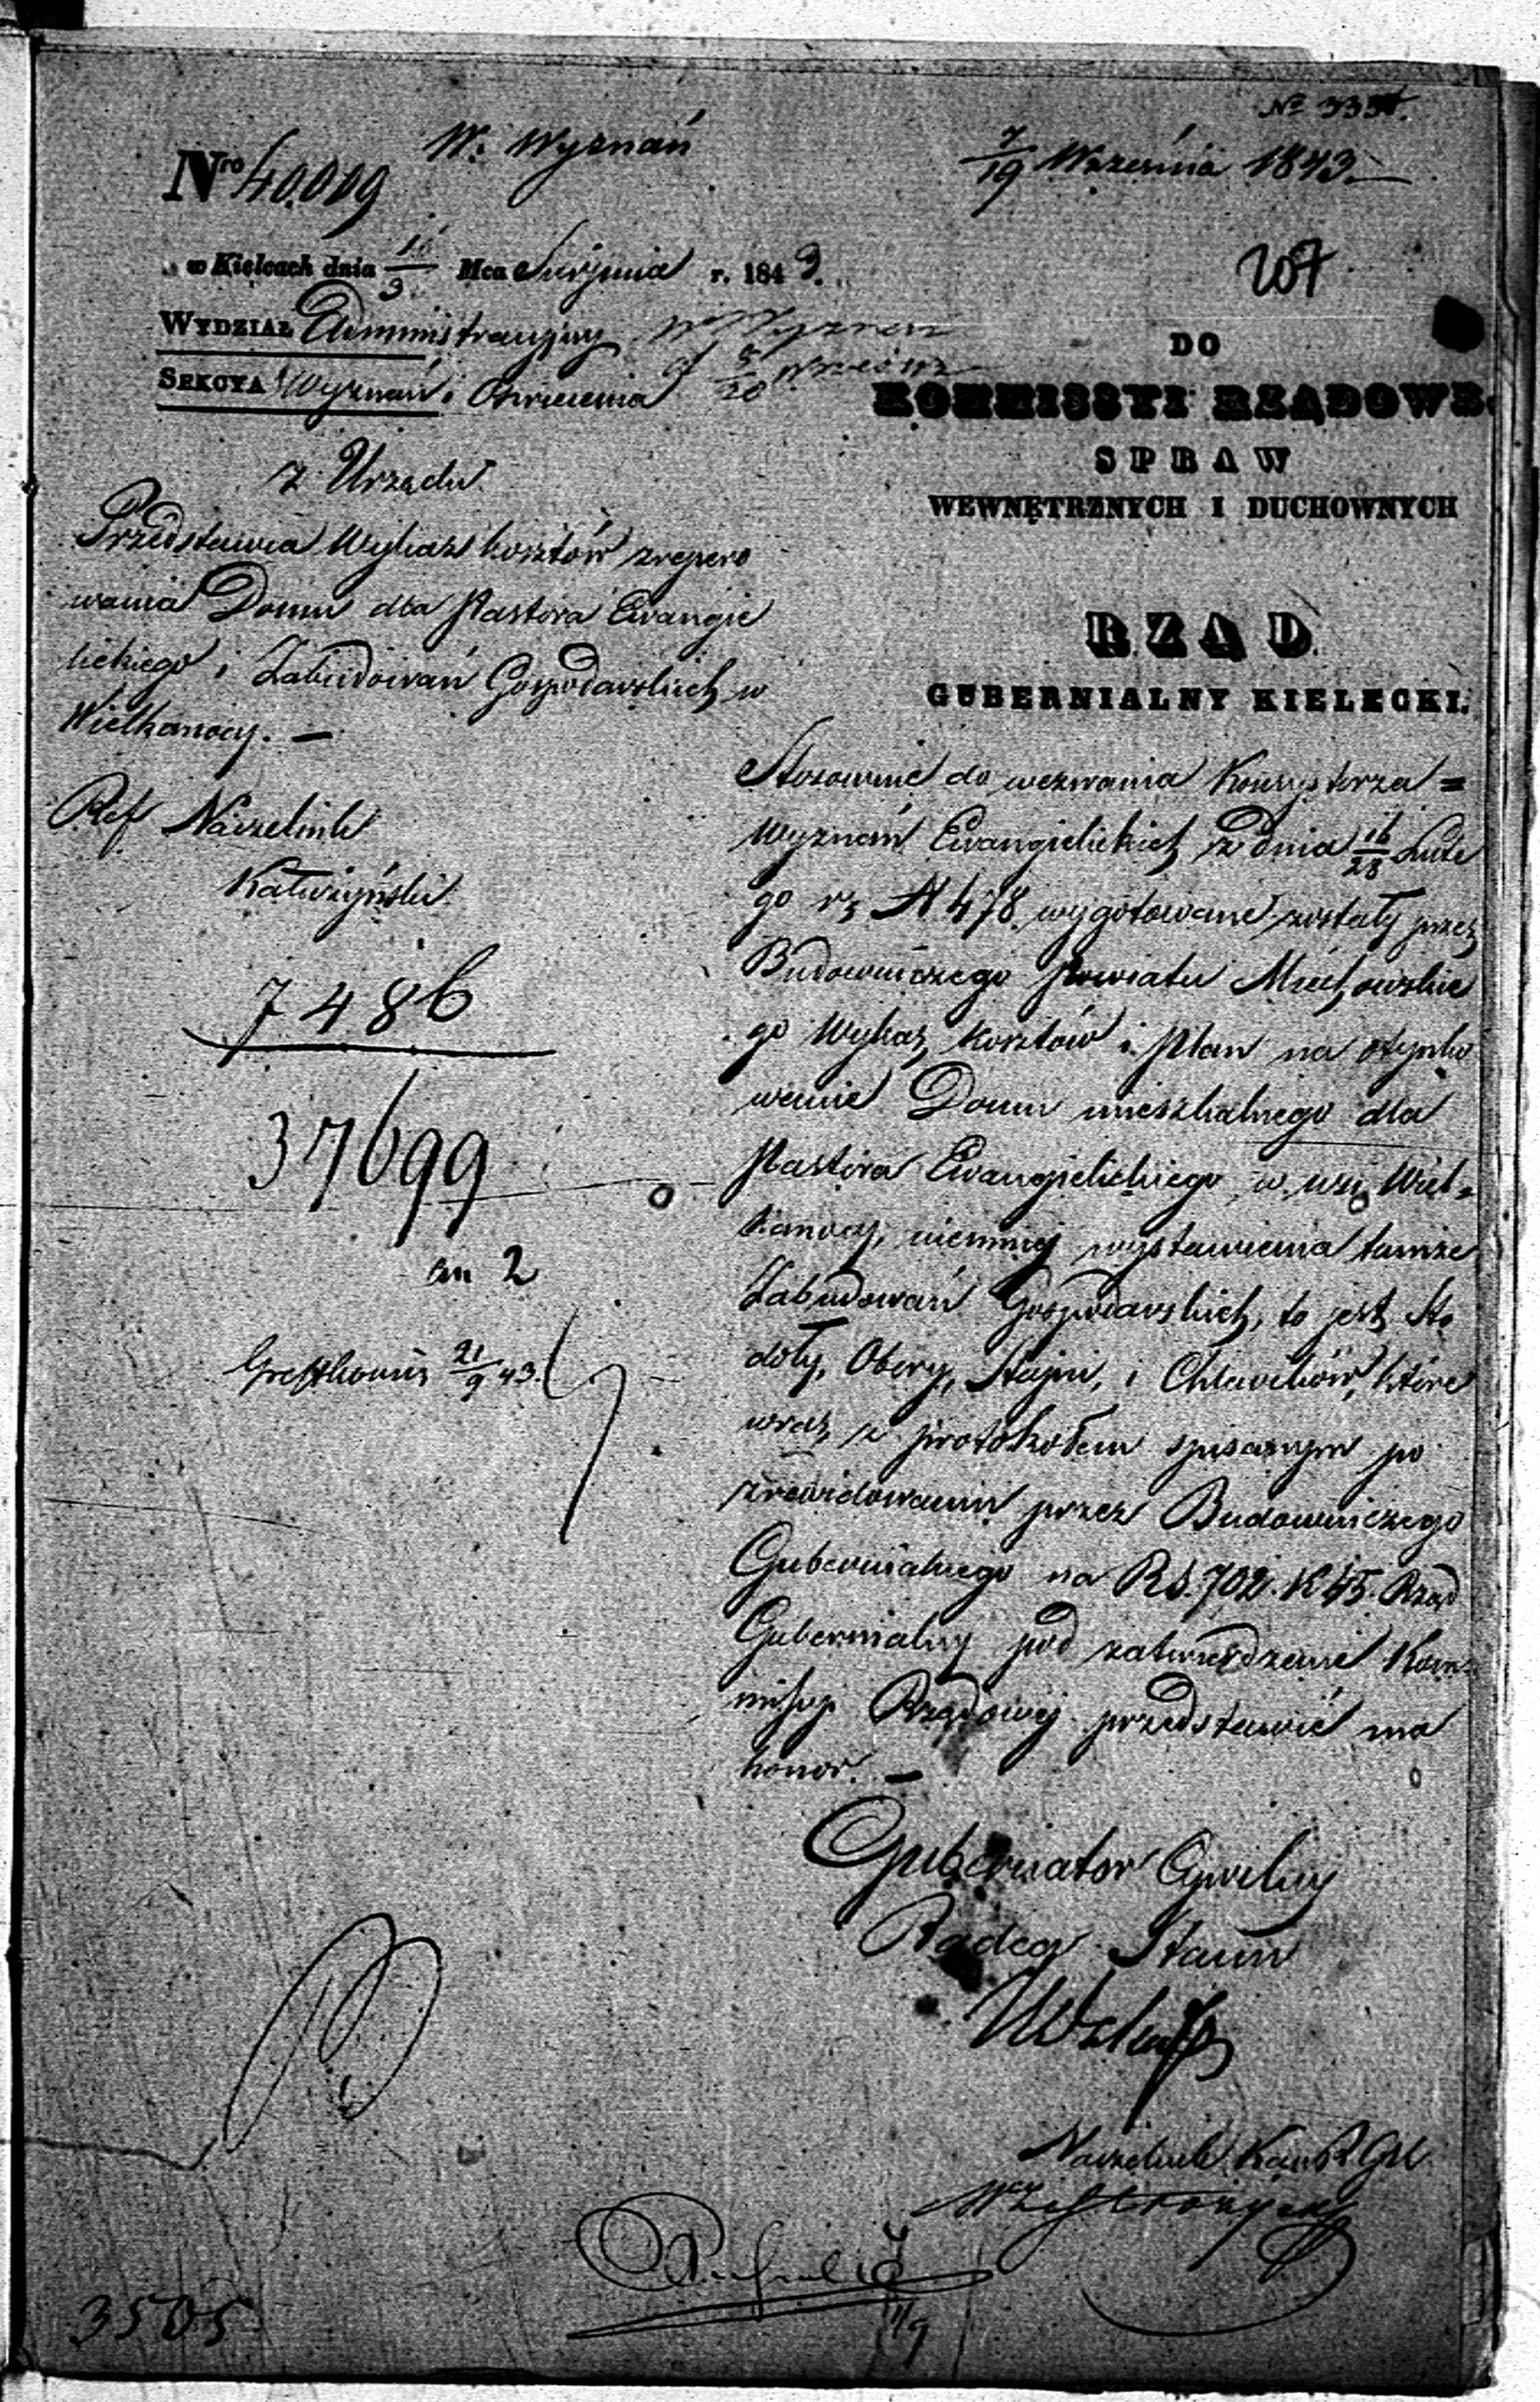 № 333
W. Wyznań
7/19 Września 1843.
Nro 40.009
w Kielcach dnia Mca Sierpnia r. 1843.
207
WYDZIAŁ Administracyjny
SEKCYA Wyznań i Oświecenia
DO
KOMMISSYI RZĄDOWE
SPRAW
WEWNĘTRZNYCH I DUCHOWNYCH
RZĄD
GUBERNIALNY KIELECKI.
z Urzędu
Przedstawia Wykaz kosztów zrepero
wania Domu dla Pastora Ewangie
lickiego i Zabudowań Gospodarskich w
Wielkanocy. —
Ref Naczelnik
7486
37699
an 2
21/9 43.
Stosownie do wezwania Konsystorza =
Wyznań Ewangielickich z dnia 16/28 Lute
go rb N 478 wygotowane zostały przez
Budowniczego powiatu Miechowskie
go Wykaz kosztów i Plan na otynko
wanie Domu mieszkalnego dla
Pastora Ewangielickiego w wsi Wiel=
kanocy, niemniej wystawienia tamże
Zabudowań Gospodarskich, to jest Sto
doły, Obory, Stajni, i Chlewików, które
wraz z protokołem spisanym po
zrewidowaniu przez Budowniczego
Gubernialnego na RS. 702. K 45. Rząd
Gubernialny pod zatwierdzenie Kom=
missyi Rządowej przedstawić ma
honor. —
Gubernator Cywilny
Radca Stanu
Naczelnik Kanc R Gu
11/9
3505